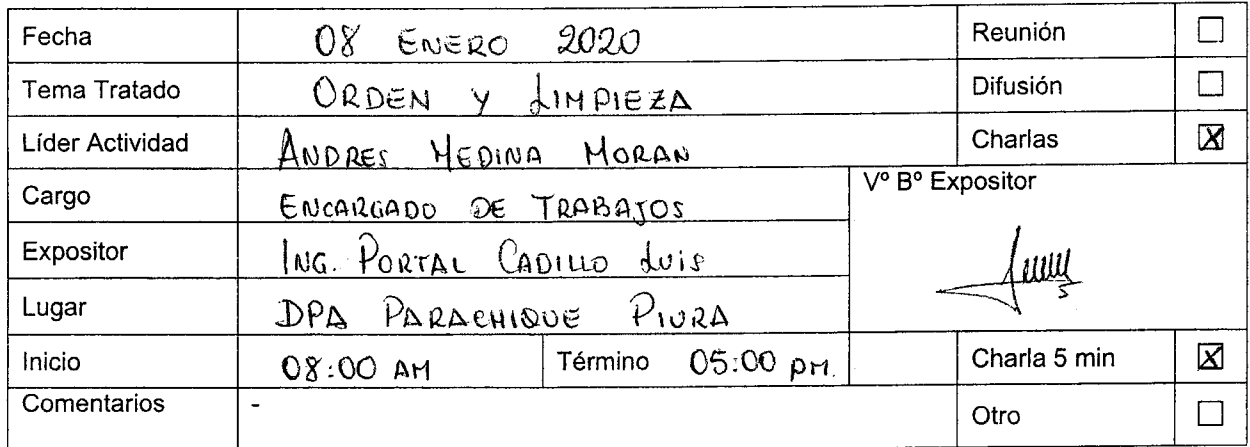 Fecha 08 ENERO 2020 Reunión
Tema Tratado ORDEN Y LIMPIEZA Difusión
Líder Actividad ANDRES MEDINA MORAN Charlas X
Cargo ENCARGADO DE TRABAJOS Vº Bº Expositor
Expositor ING. PORTAL CADILLO LUIS
Lugar DPA PARACHIQUE PIURA
Inicio 08:00 AM Término 05:00 PM. Charla 5 min X
Comentarios - Otro